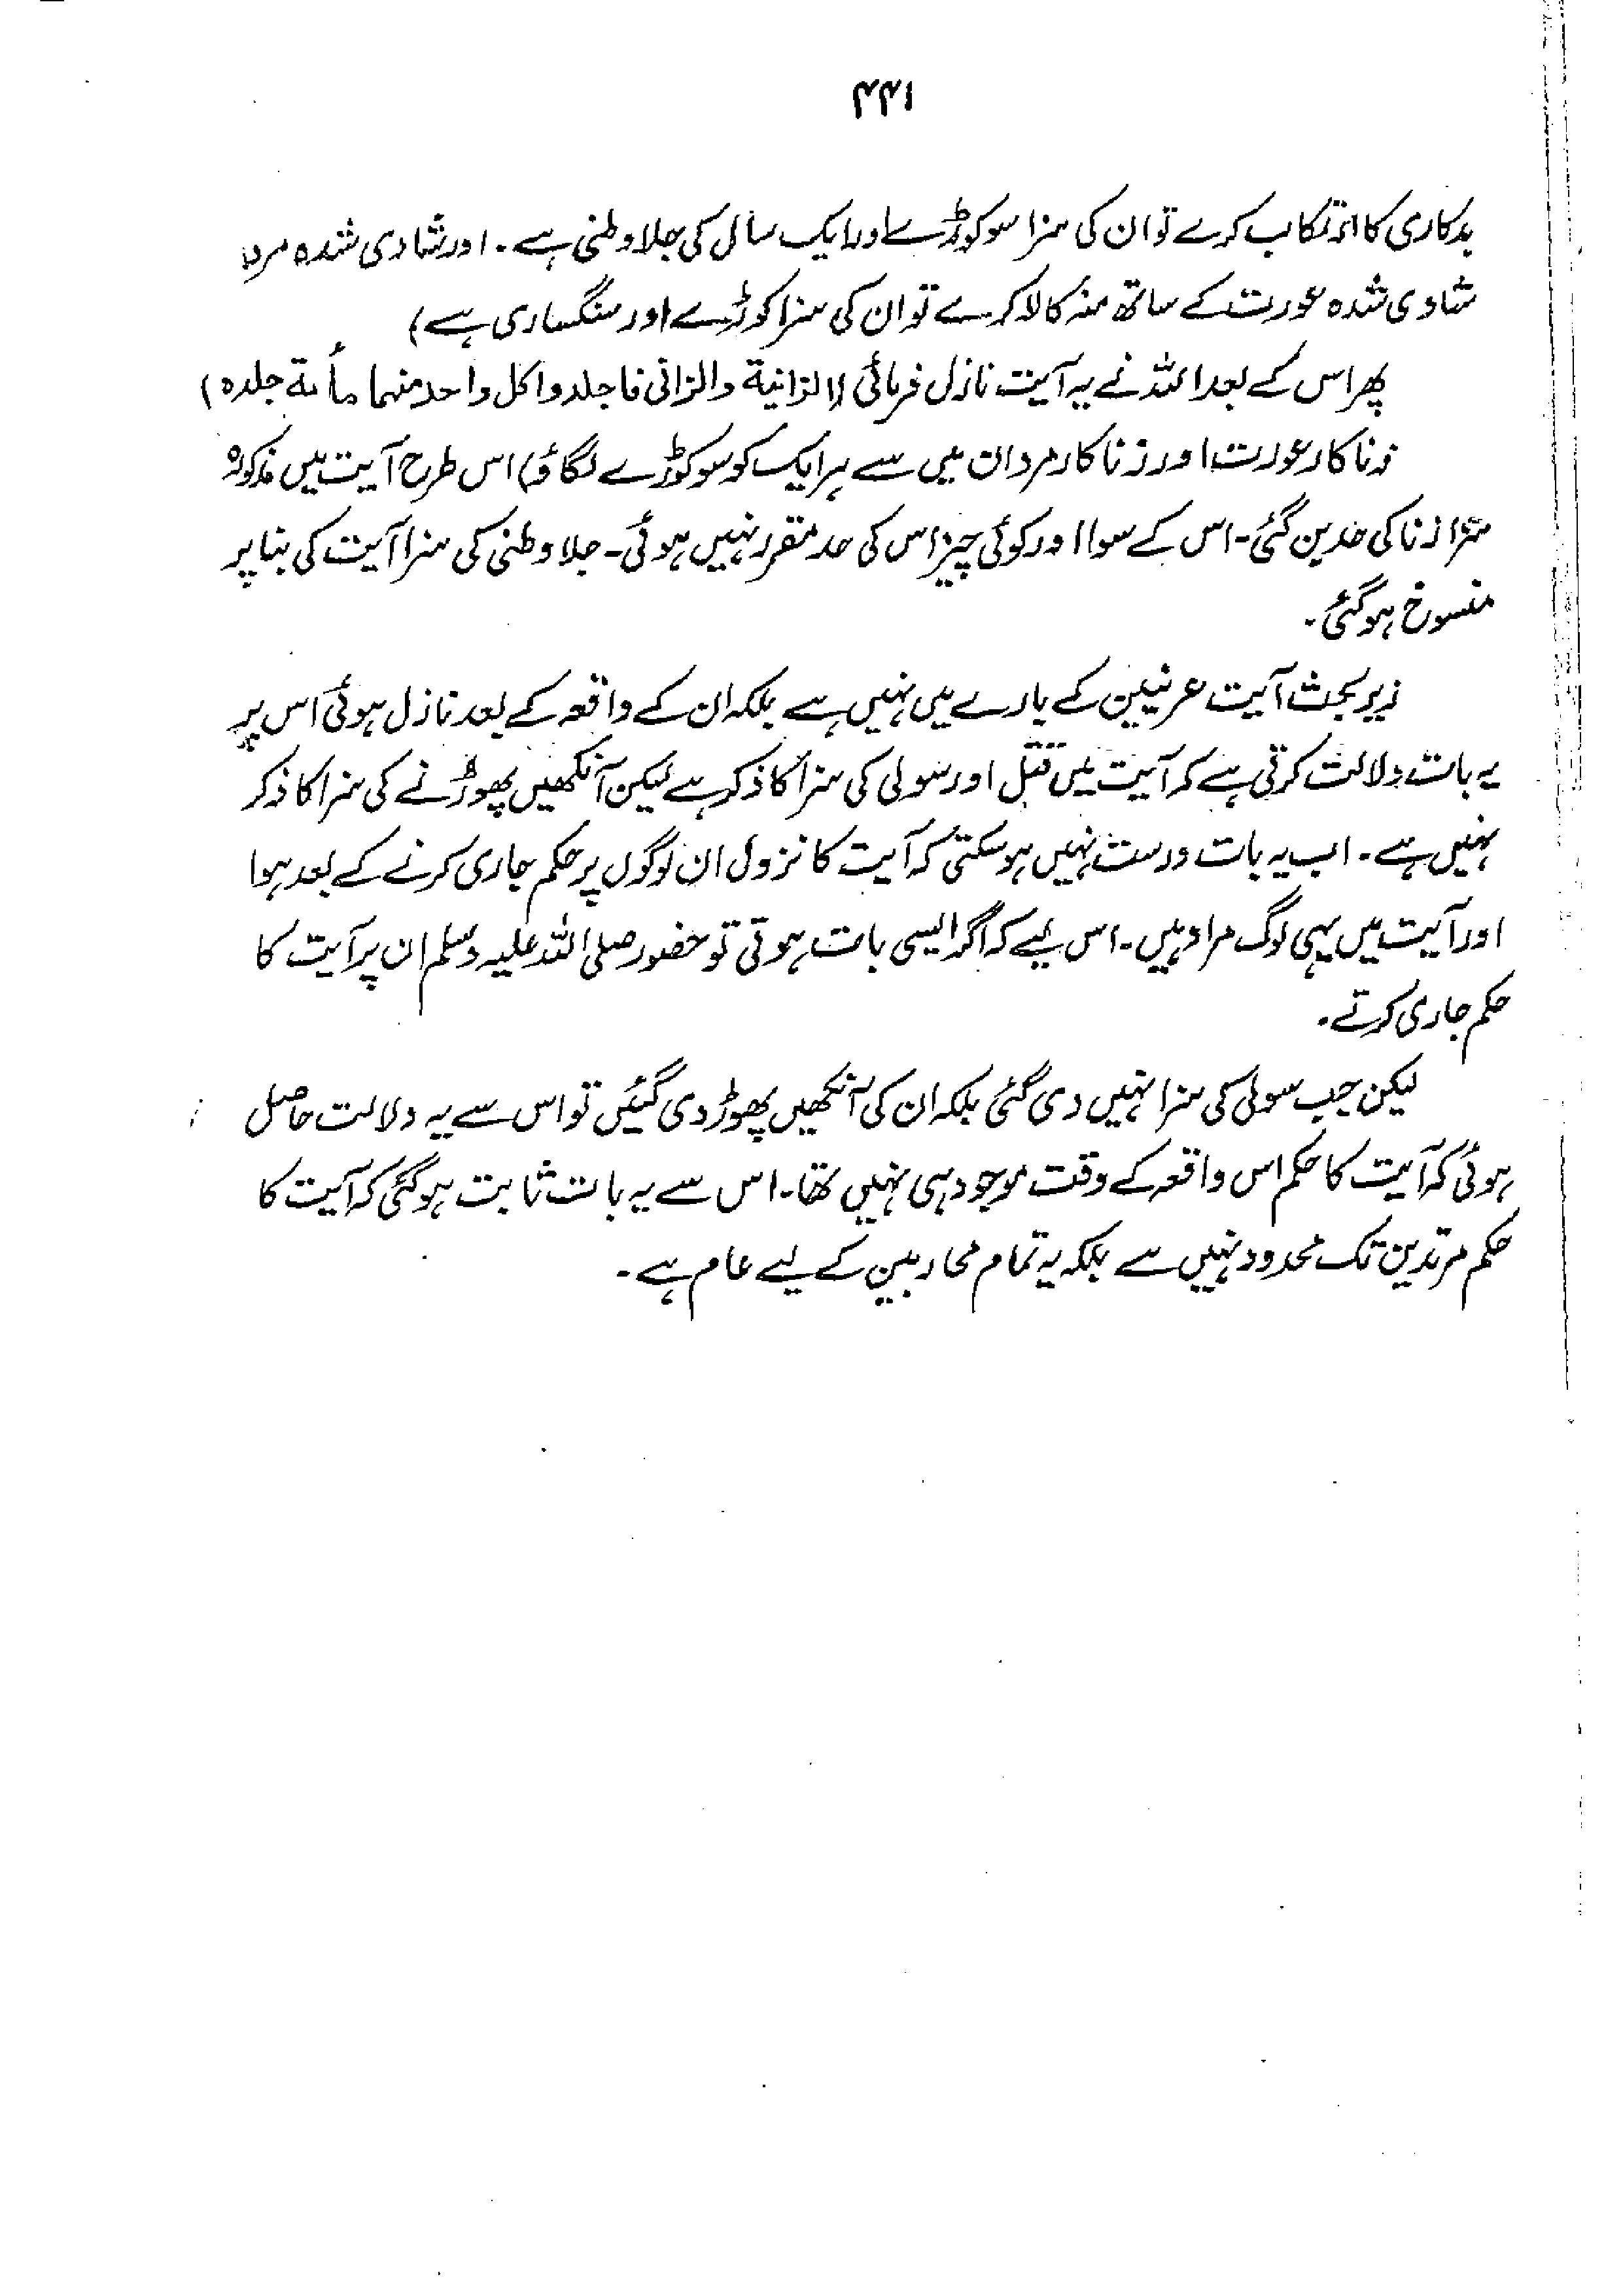 ۴۴۱
بدکاری کا ارتکاب کرے تو ان کی سزا سو کوڑے اور ایک سال کی جلا وطنی ہے۔ اور شادی شدہ مرد
شادی شدہ عورت کے ساتھ منہ کالا کرے تو ان کی سزا کوڑے اور سنگساری ہے)
پھر اس کے بعد اللہ نے یہ آیت نازل فرمائی (الزانیة والزانی فاجلدوا کل واحد منہما مأئة جلدہ)
زنا کار عورت اور زنا کار مرد ان میں سے ہر ایک کو سو کوڑے لگاؤ) اس طرح آیت میں مذکورہ
سزا زنا کی حد بن گئی۔ اس کے سوا اور کوئی چیز اس کی حد مقرر نہیں ہوئی۔ جلا وطنی کی سزا آیت کی بنا پر
منسوخ ہو گئی۔
زیر بحث آیت عرنیین کے بارے میں نہیں ہے بلکہ ان کے واقعہ کے بعد نازل ہوئی اس پر
یہ بات دلالت کرتی ہے کہ آیت میں قتل اور سولی کی سزا کا ذکر ہے لیکن آنکھیں پھوڑنے کی سزا کا ذکر
نہیں ہے۔ اب یہ بات درست نہیں ہو سکتی کہ آیت کا نزول ان لوگوں پر حکم جاری کرنے کے بعد ہوا
اور آیت میں یہی لوگ مراد ہیں۔ اس لیے کہ اگر ایسی بات ہوتی تو حضور صلی اللہ علیہ وسلم ان پر آیت کا
حکم جاری کرتے۔
لیکن جب سولی کی سزا نہیں دی گئی بلکہ ان کی آنکھیں پھوڑ دی گئیں تو اس سے یہ دلالت حاصل
ہوئی کہ آیت کا حکم اس واقعہ کے وقت موجود ہی نہیں تھا۔ اس سے یہ بات ثابت ہو گئی کہ آیت کا
حکم مرتدین تک محدود نہیں سے بلکہ یہ تمام محاربین کے لیے عام ہے۔